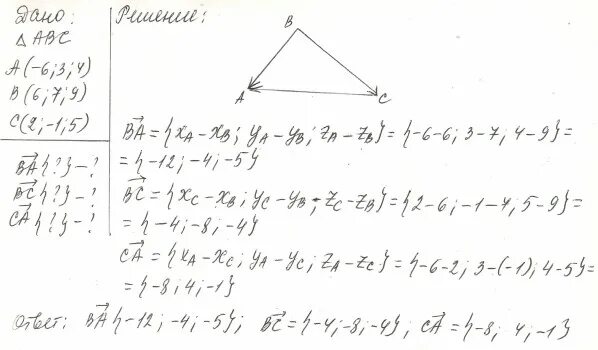 Дано:
△ABC
A(-6; 3; 4)
B(6; 7; 9)
C(2; -1; 5)
BA{?} - ?
BC{?} - ?
CA{?} - ?
Решение:
B
A
C
BA = {xA - xB; yA - yB; zA - zB} = {-6-6; 3-7; 4-9} =
= {-12; -4; -5}
BC = {xC - xB; yC - yB; zC - zB} = {2-6; -1-7; 5-9} =
= {-4; -8; -4}
CA = {xA - xC; yA - yC; zA - zC} = {-6-2; 3-(-1); 4-5} =
= {-8; 4; -1}
Ответ: BA{-12; -4; -5}; BC = {-4; -8; -4}; CA = {-8; 4; -1}